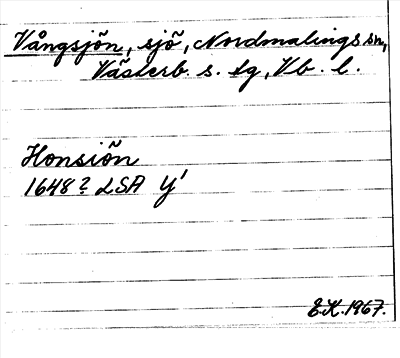 Vångsjön, sjö, Nordmalings sn,
Västerb. s. tg, Vb. l.
Honsiön
1648? LSA Y'
E.K. 1967.